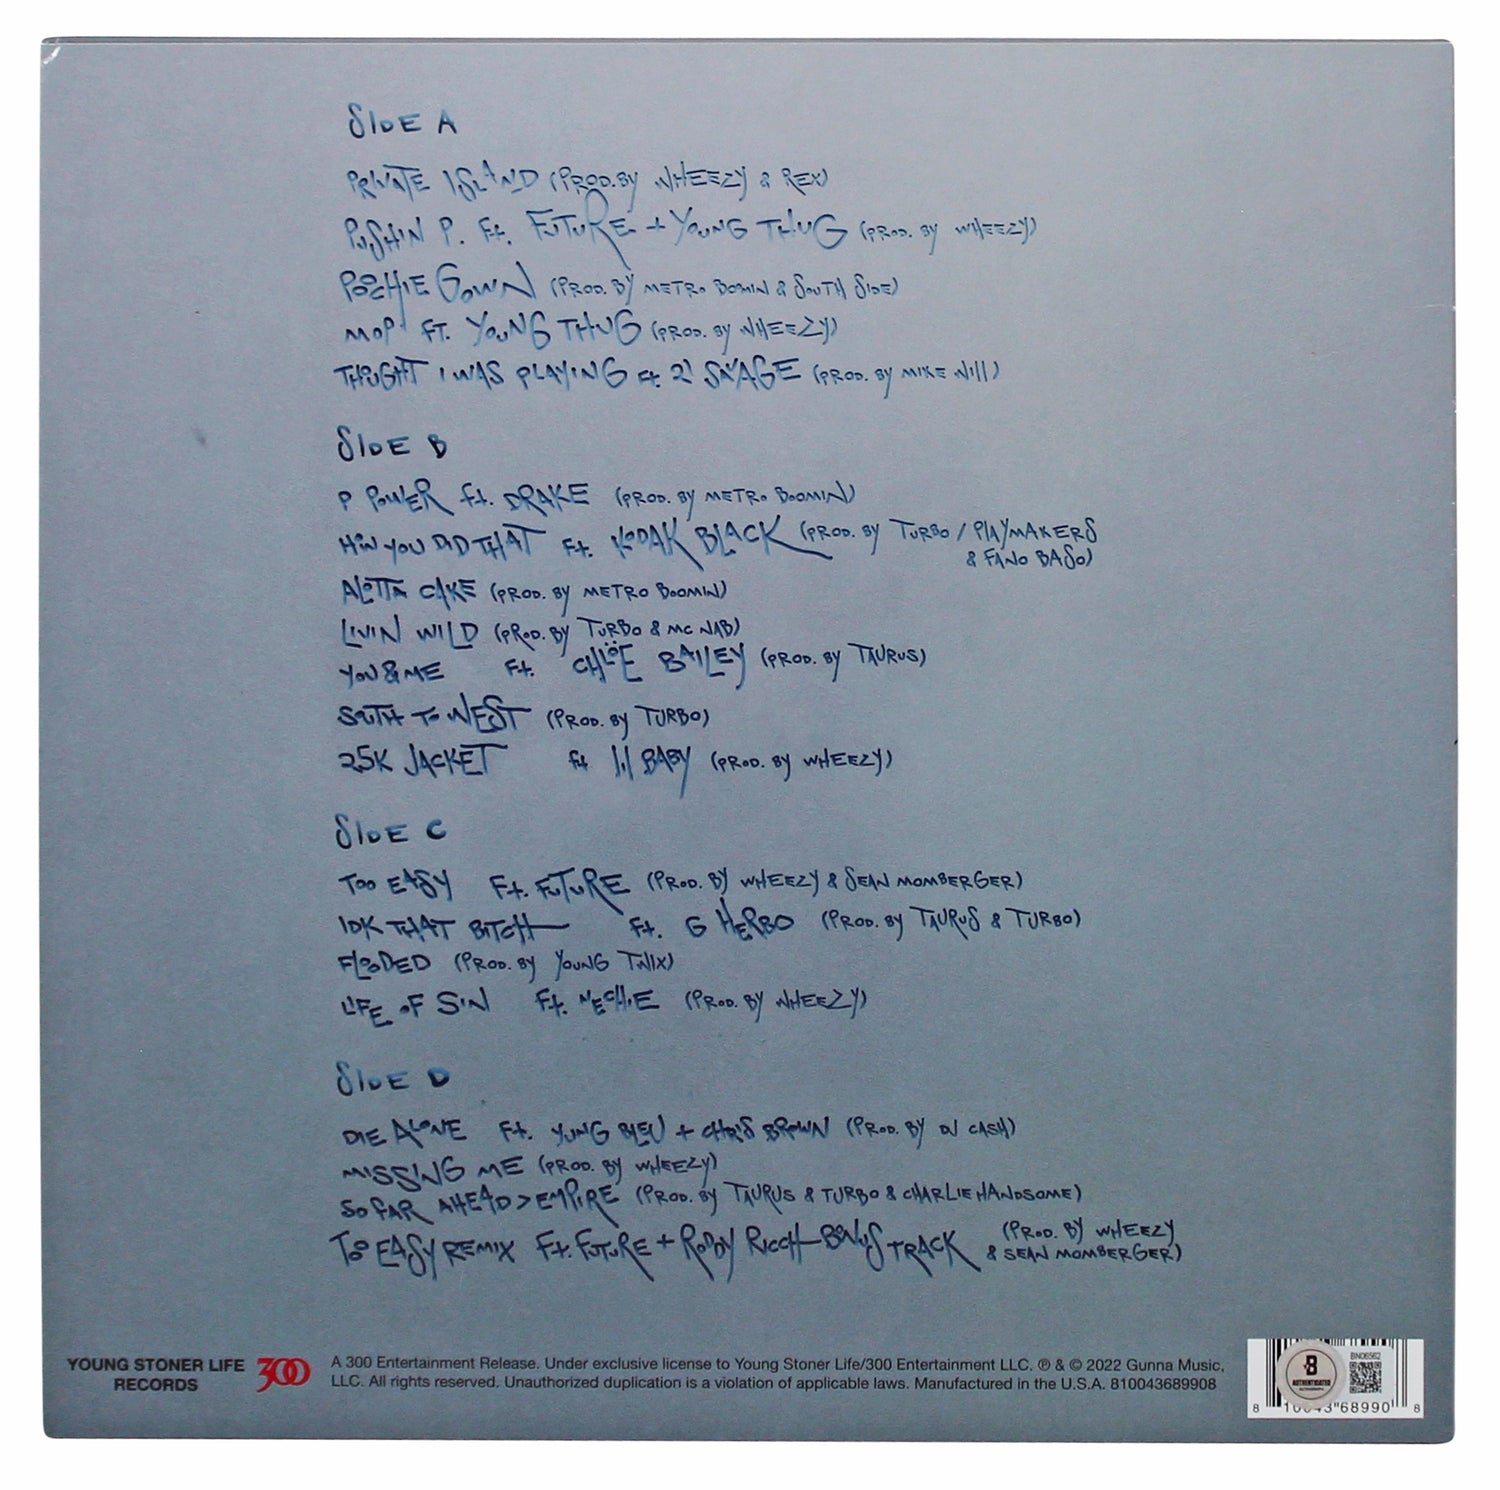 SIDE A
PRIVATE ISLAND (PROD. BY WHEEZY & REX)
PUSHIN P. Ft. FUTURE + YOUNG THUG (PROD. BY WHEEZY)
POOCHIE GOWN (PROD. BY METRO BOMIN & SOUTH SIDE)
MOP FT. YOUNG THUG (PROD. BY WHEEZY)
THOUGHT I WAS PLAYING Ft. 21 SAVAGE (PROD. BY MIKE WILL)
SIDE B
P POWER Ft. DRAKE (PROD. BY METRO BOOMIN)
HOW YOU DID THAT Ft. KODAK BLACK (PROD. BY TURBO / PLAYMAKERS
& FANO BASO)
ALOTTA CAKE (PROD. BY METRO BOOMIN)
LIVIN WILD (PROD. BY TURBO & MC NAB)
YOU & ME Ft. CHLÖE BAILEY (PROD. BY TAURUS)
SOUTH TO WEST (PROD. BY TURBO)
25K JACKET Ft lil BABY (PROD. BY WHEEZY)
SIDE C
TOO EASY Ft. FUTURE (PROD. BY WHEEZY & SEAN MOMBERGER)
IDK THAT BITCH Ft. G HERBO (PROD. BY TAURUS & TURBO)
FLOODED (PROD. BY YOUNG TWIX)
LIFE OF SIN Ft. NECHIE (PROD. BY WHEEZY)
SIDE D
DIE ALONE Ft. YUNG BLEU + CHRIS BROWN (PROD. BY DJ CASH)
MISSING ME (PROD. BY WHEEZY)
SO FAR AHEAD > EMPIRE (PROD. BY TAURUS & TURBO & CHARLIE HANDSOME)
TOO EASY REMIX Ft. FUTURE + RODDY RICCH BONUS TRACK (PROD. BY WHEEZY
& SEAN MOMBERGER)
YOUNG STONER LIFE
RECORDS
300
A 300 Entertainment Release. Under exclusive license to Young Stoner Life/300 Entertainment LLC. ℗ & © 2022 Gunna Music,
LLC. All rights reserved. Unauthorized duplication is a violation of applicable laws. Manufactured in the U.S.A. 810043689908
B
AUTHENTICATED
BN06562
68990 8